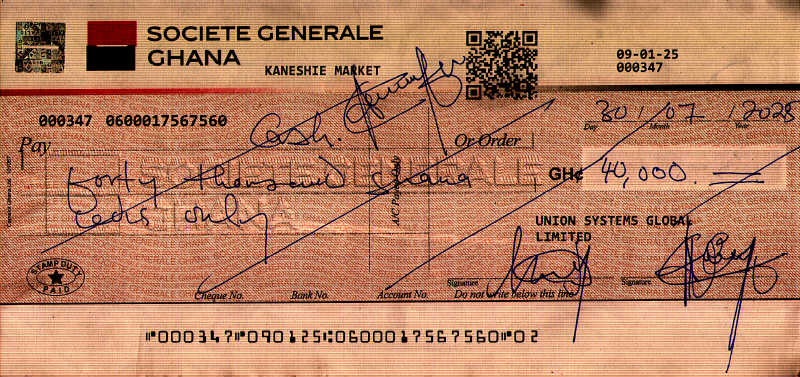 SOCIETE GENERALE
GHANA
KANESHIE MARKET
09-01-25
000347
000347 0600017567560
30 / 07 / 2025
Day Month Year
Pay
Cash.
Or Order
forty thousand Ghana
cedis only
GH¢ 40,000.
A/C Payee Only
UNION SYSTEMS GLOBAL
LIMITED
STAMP DUTY
PAID
Signature
Signature
Cheque No. Bank No. Account No. Do not write below this line
⑈000347⑈090125⑆0600017567560⑈02